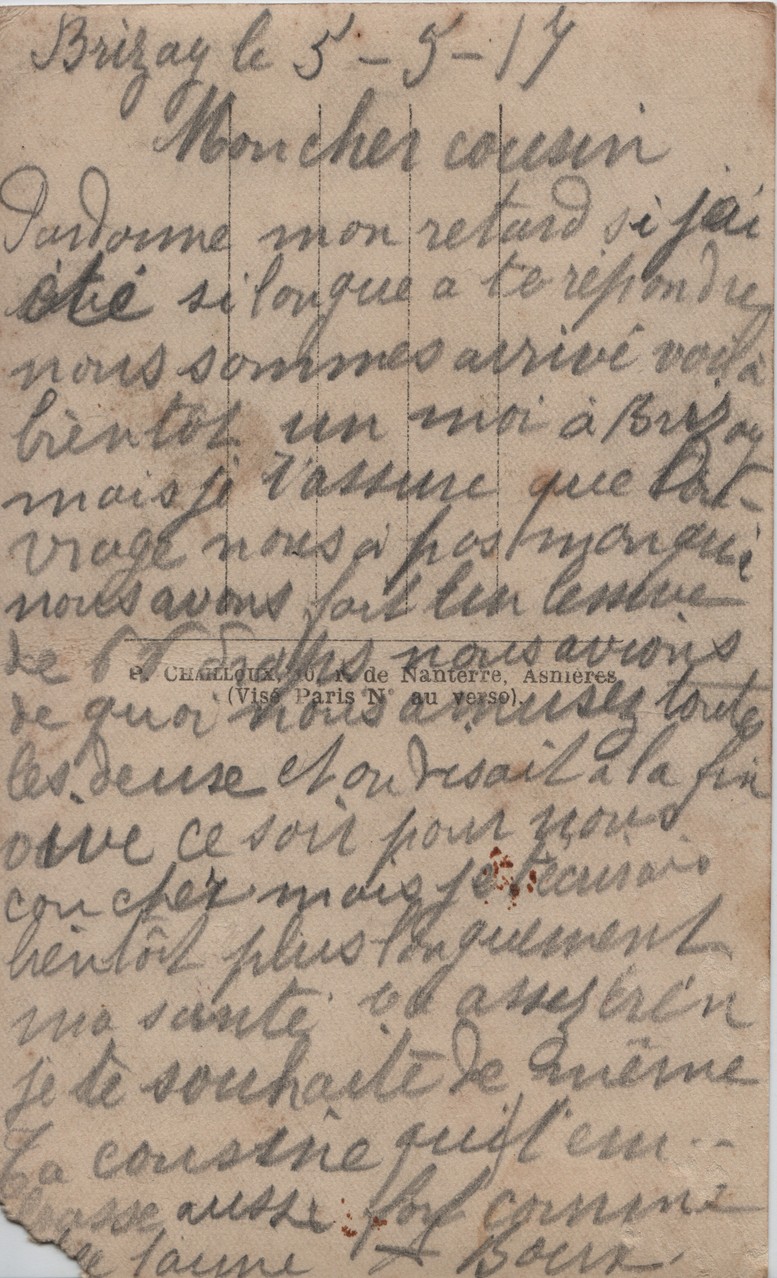 Brizay le 5-5-17
Mon cher cousin
Pardonne mon retard si j'ai
été si longue a te répondre
nous sommes arrivé voila
bientot un moi à Brizay
mais je t'assure que l'ou-
vrage nous a pas manqué
nous avons fait une lessive
de draps nous avions
P. CHAILLOUX, r. de Nanterre, Asnières
(Visé Paris N° au verso).
de quoi nous amusez toute
les deuse et on disait a la fin
vive ce soir pour nous
coucher mais je t'écrirais
bientôt plus longuement
ma santé va assez bien
je te souhaite de même
Ta cousine qui t'em--
brasse aussi for comme
t'aime